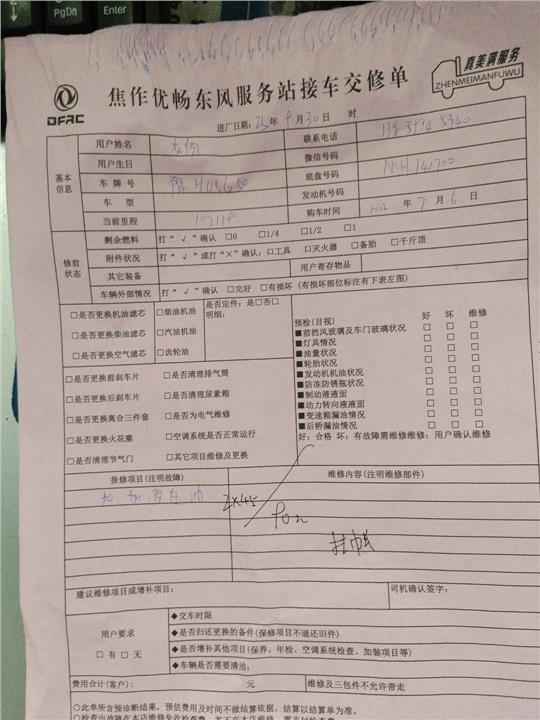 PgDn
End
DFAC
焦作优畅东风服务站接车交修单
真美满服务
ZHENMEIMANFUWU
进厂日期: 25年9月30日 时
用户姓名
联系电话
用户生日
微信号码
基本信息
车牌号
H05G50
底盘号码
MH141700
车型
发动机号码
当前里程
购车时间 2022年7月6日
修前状态
剩余燃料 打“√”确认 □0 □1/4 □1/2 □1
附件状况 打“√”或打“×”确认:□工具 □灭火器 □备胎 □千斤顶
其它装备
用户寄存物品
车辆外部情况 打“√”确认 □完好 □有损坏 (有损坏部位标注有下表左图)
□是否更换机油滤芯 □柴油机油
□是否更换柴油滤芯 □汽油机油
□是否更换空气滤芯 □齿轮油
是否定件: 是□否□
明细:
□是否更换前刹车片 □是否清理排气筒
□是否更换后刹车片 □是否清理尿素箱
□是否更换离合三件套 □是否为电气维修
□是否更换火花塞 □空调系统是否正常运行
□是否清理节气门 □其它项目维修及更换
预检(目视) 好 坏 维修
■前挡风玻璃及车门玻璃状况 □ □ □
■灯具情况 □ □ □
■油量状况 □ □ □
■轮胎状况 □ □ □
■发动机机油状况 □ □ □
■防冻防锈瓶状况 □ □ □
■制动液液面 □ □ □
■动力转向液液面 □ □ □
■变速箱漏油情况 □ □ □
■后桥漏油情况 □ □ □
好: 合格 坏: 有故障需维修维修: 用户确认维修
报修项目(注明故障)
维修内容(注明维修部件)
2×45
90元
挂帐
建议维修项目或增补项目:
司机确认签字:
用户要求
□有 □无
◆交车时限
◆是否归还更换的备件(保修项目不退还旧件)
◆是否增补其他项目(保养、年检、空调系统检查、加装项目等)
◆车辆是否需要清洁:
费用合计(客户): 元
维修及三包件不允许带走
○此单所含预诊断结果，预估费用及时间不做结算依据，结算以结算单为准。